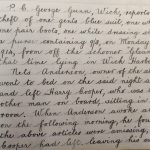 P. C. George Gunn, Wick, reports
theft of one gents blue suit, one wh
one pair boots, one white drawing
a purse containing 9/-, on Monday
1913, from the schooner
that time lying in Wick Harbo
Nels Anderson, owner of the
went to bed on the said night a
and left Harry Cooper, who was
other man on board, sitting in
room. When Anderson awoke a
on the following morning, he fou
the above articles were amissing,
Cooper had left, leaving his o